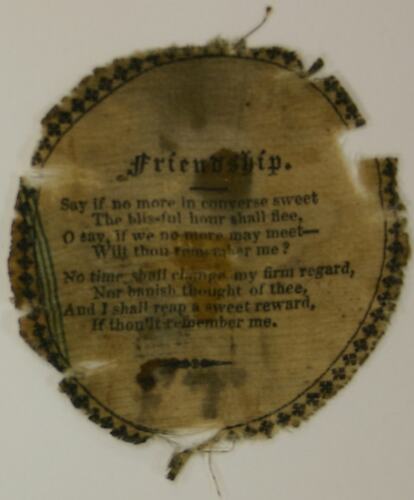 Friendship.
Say if no more in converse sweet
The blissful hour shall flee,
O say, if we no more may meet—
Will thou remember me?
No time shall change my firm regard,
Nor banish thought of thee,
And I shall reap a sweet reward,
If thou'lt remember me.